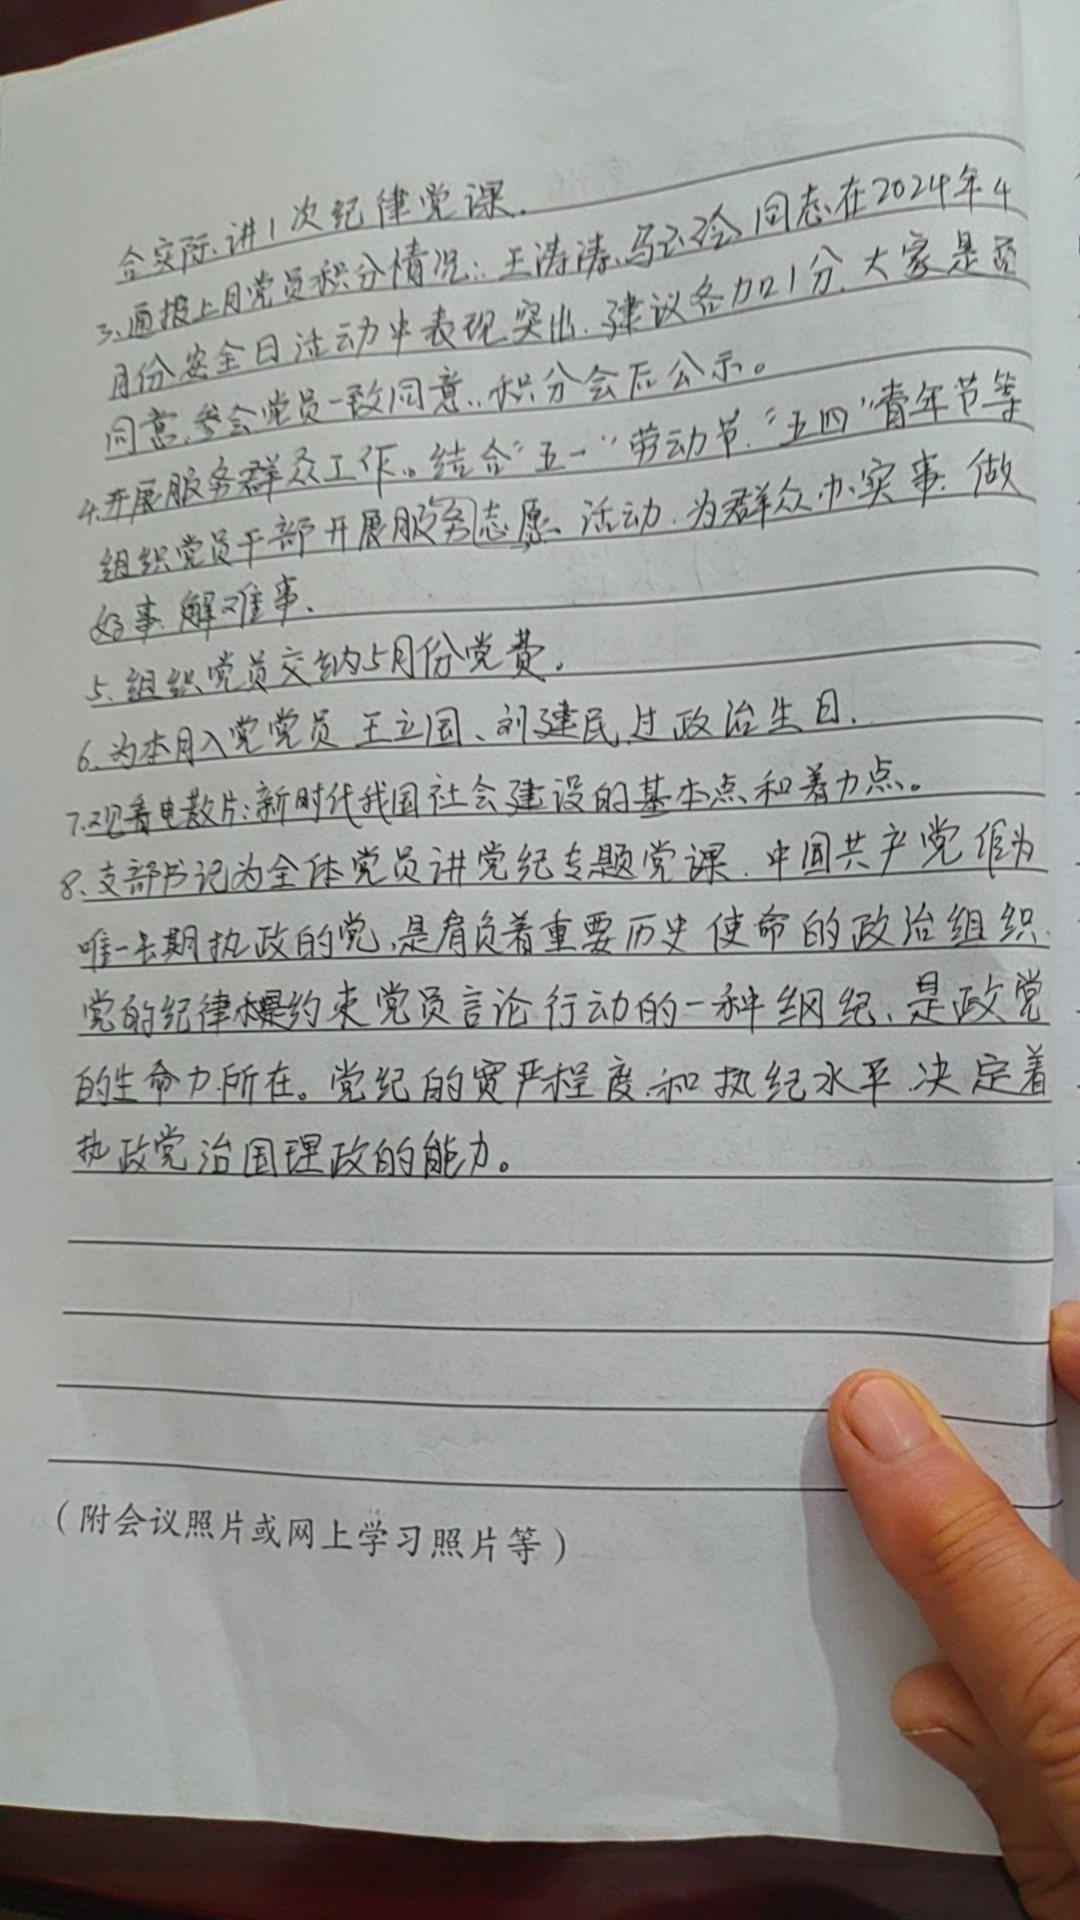 合实际,讲1次纪律党课.
3.通报上月党员积分情况:王涛涛,马玉玲同志在2024年4
月份安全日活动中表现突出,建议各加1分,大家是否
同意,参会党员一致同意,积分会后公示。
4.开展服务群众工作。结合"五一"劳动节,"五四"青年节等
组织党员干部开展服务志愿活动,为群众办实事,做
好事,解难事.
5.组织党员交纳5月份党费.
6.为本月入党党员王立国、刘建民过政治生日.
7.观看电教片:新时代我国社会建设的基本点和着力点。
8.支部书记为全体党员讲党纪专题党课.中国共产党作为
唯一长期执政的党,是肩负着重要历史使命的政治组织.
党的纪律是约束党员言论行动的一种纲纪,是政党
的生命力所在。党纪的宽严程度和执纪水平,决定着
执政党治国理政的能力。
(附会议照片或网上学习照片等)